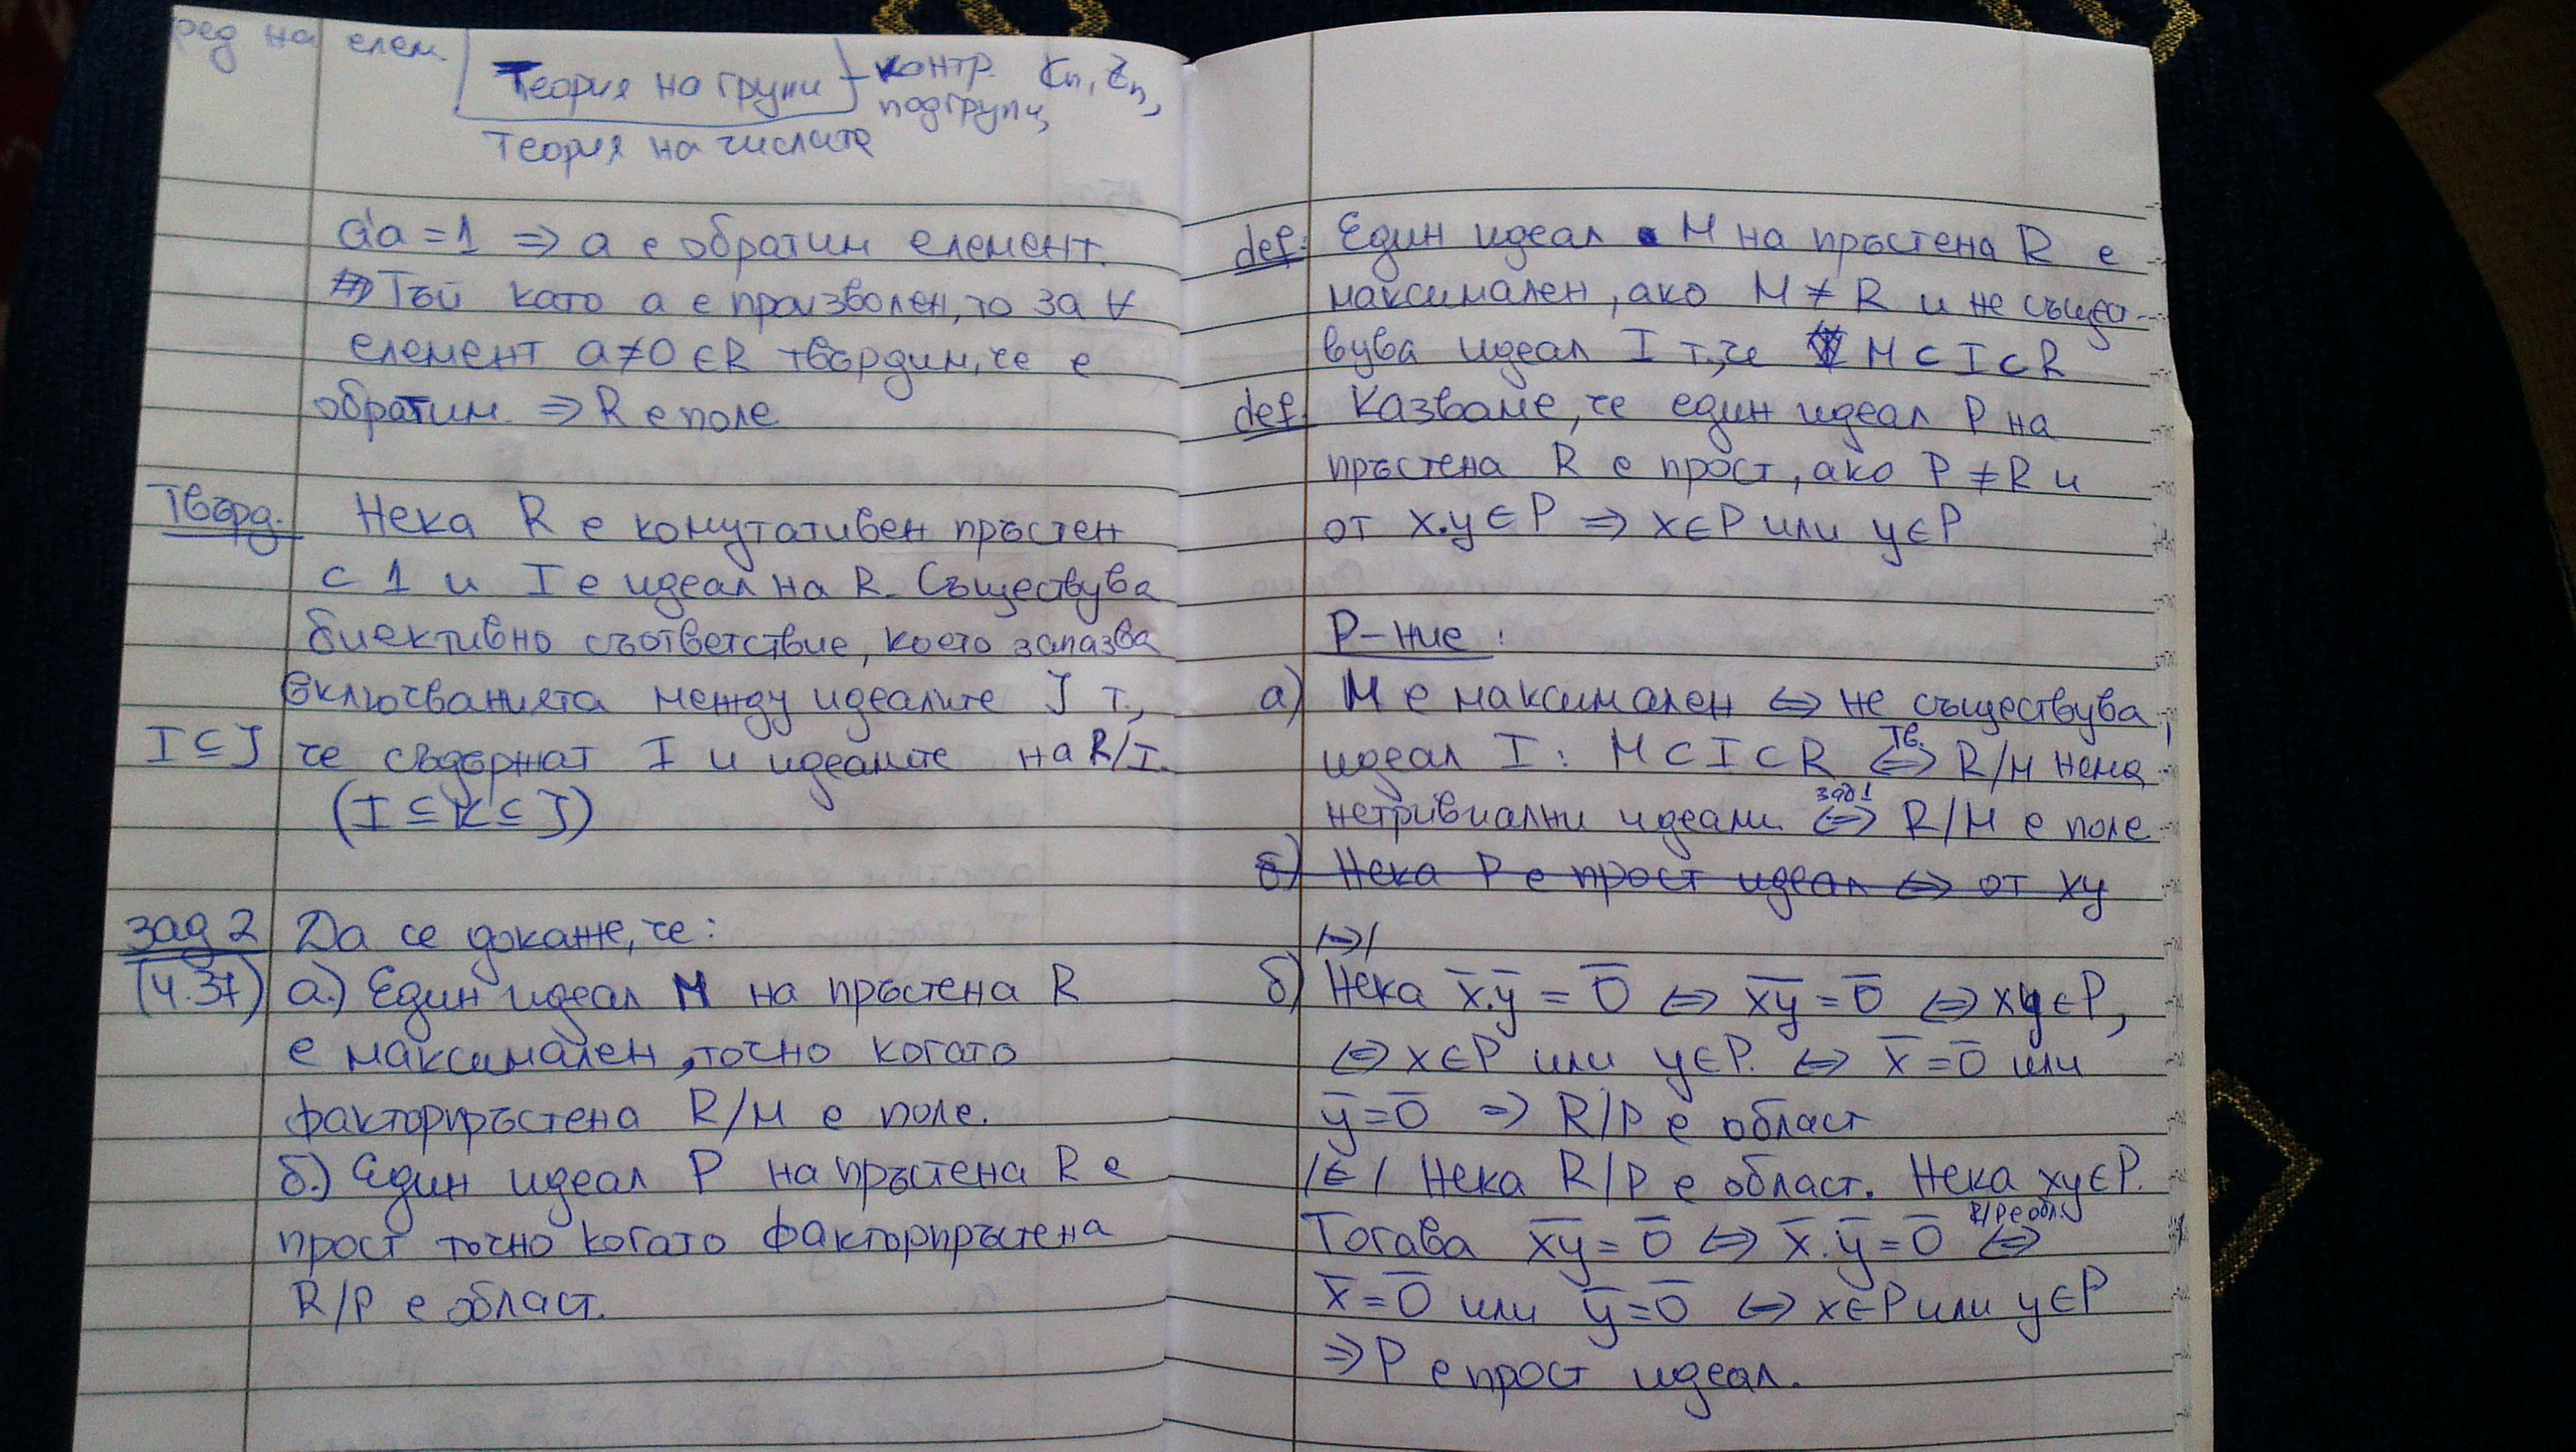 ред на елем.
Теория на групи контр. ℂn, ℤn,
подгрупи,
Теория на числата
a'a = 1 ⇒ a е обратим елемент.
⇒ Тъй като a е произволен, то за ∀
елемент a≠0 ∈R твърдим, че е
обратим ⇒ R е поле
Твърд. Нека R е комутативен пръстен
с 1 и I е идеал на R. Съществува
биективно съответствие, което запазва
включванията между идеалите J т.,
I ⊆ J че съдържат I и идеалите на R/I.
(I ⊆ K ⊆ J)
зад 2 Да се докаже, че:
(4.37) а.) Един идеал M на пръстена R
е максимален, точно когато
факторпръстена R/M е поле.
б.) Един идеал P на пръстена R е
прост точно когато факторпръстена
R/P е област.
def: Един идеал M на пръстена R е
максимален, ако M ≠ R и не същест-
вува идеал I т., че M ⊂ I ⊂ R
def: Казваме, че един идеал P на
пръстена R е прост, ако P ≠ R и
от x.y ∈ P ⇒ x∈P или y∈P
Р-ние:
а) M е максимален ⇔ не съществува
идеал I: M ⊂ I ⊂ R ⇔ Тв. R/M няма
нетривиални идеали ⇔ зад 1 R/M е поле
б) Нека P е прост идеал ⇔ от xy
/⇒/
б) Нека x̄.ȳ = 0̄ ⇔ x̄ȳ = 0̄ ⇔ xy∈P,
⇔ x∈P или y∈P. ⇔ x̄ = 0̄ или
ȳ = 0̄ ⇒ R/P е област
/⇐/ Нека R/P е област. Нека xy∈P.
Тогава x̄ȳ = 0̄ ⇔ x̄.ȳ = 0̄ ⇔ R/P е обл.
x̄ = 0̄ или ȳ = 0̄ ⇔ x∈P или y∈P
⇒ P е прост идеал.